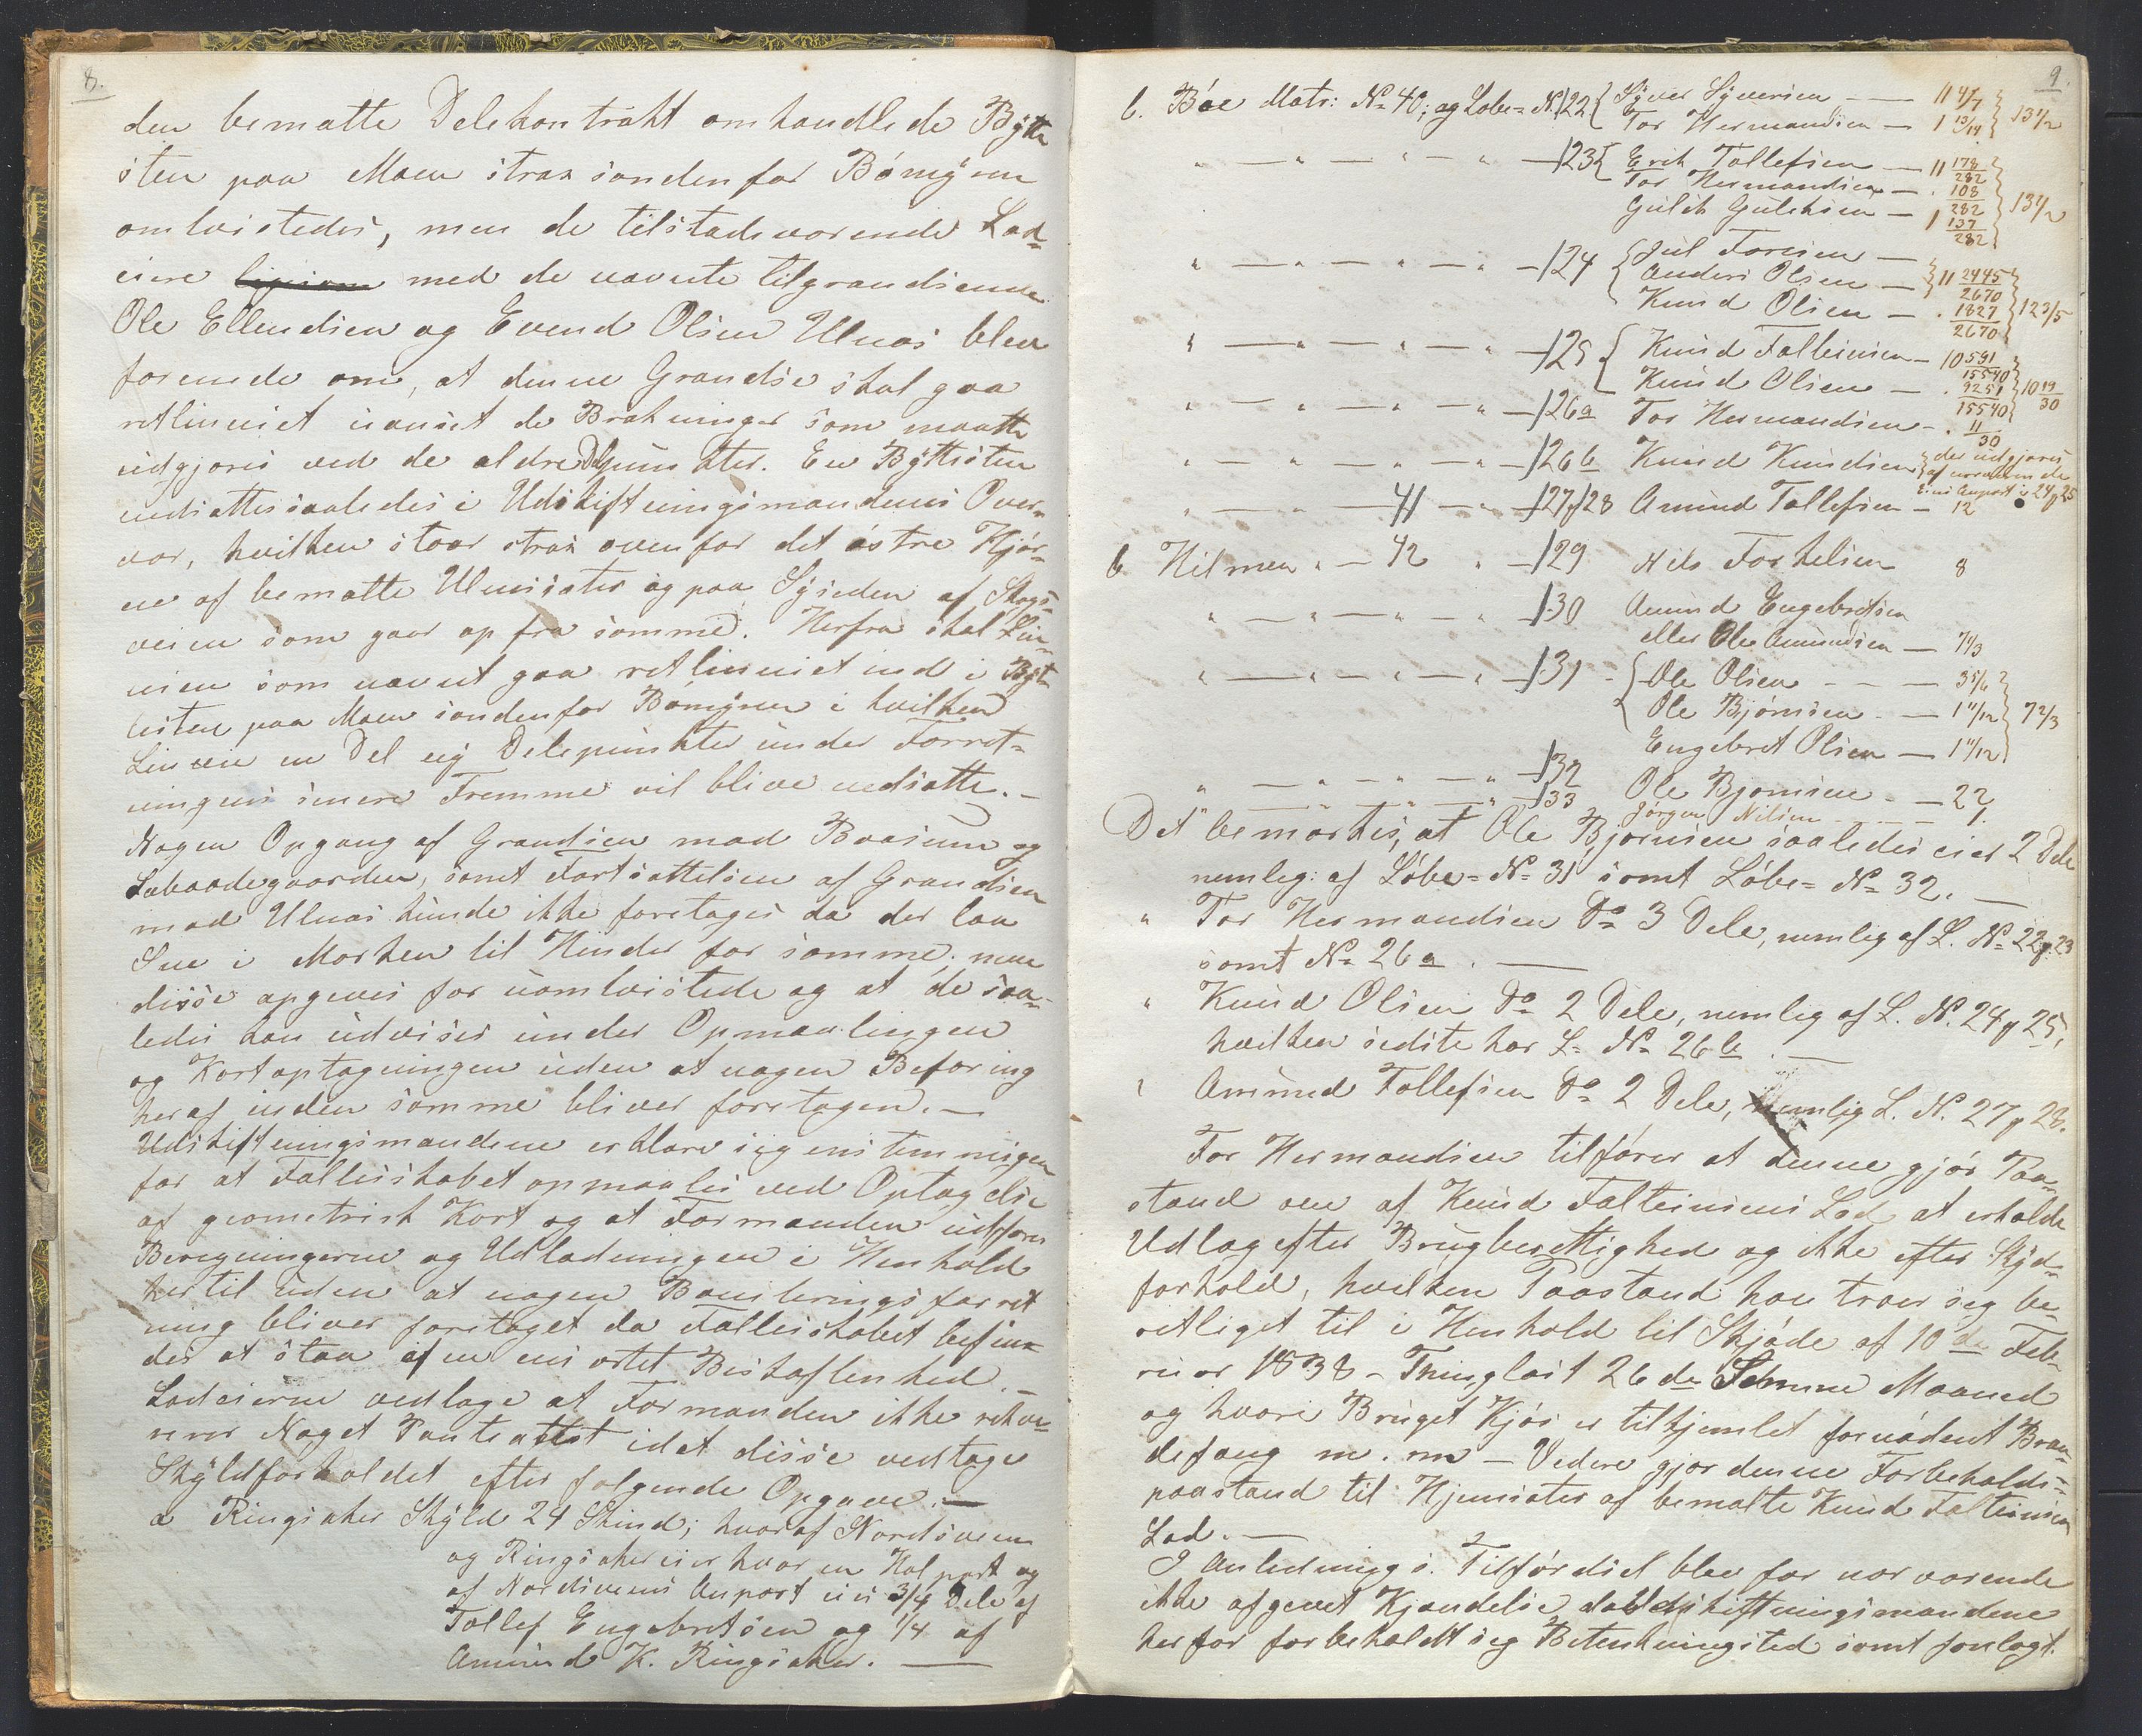 8.
den bemälte Delekontrakt omhandlede Bytte
sten paa Moen strax søndenfor Bömyren
omtvistedes, men de tilstædeværende Lod-
eiere med de nævnte tilgrændsende
Ole Ellendsen og Evend Olsen Ulnæs blev
forenede om, at denne Grændse skal gaa
retliniet uanset de Brækninger som maatte
udgjøres ved de ældre Delepunkter. En Byttesten
nedsattes saaledes i Udskiftningsmændenes Over-
vær, hvilken staar strax ovenfor det østre Hjör-
ne af bemälte Ulnessæter og paa Sysiden af Skogs-
veien som gaar op fra samme. Herfra skal Lin-
nien som nævnt gaa retliniet ind i Byt-
testen paa Moen søndenfor Bømyren i hvilken
Linnie en Del ny Delepunkter under Forret-
ningens senere Fremme vil blive nedsatte. –
Nogen Opgang af Grændsen mod Boasum og
Sæbaadegaarden, samt Fortsættelsen af Grændsen
mod Ulnæs kunde ikke foretages da der laa
Sne i Marken til Hinder for samme, men
disse opgives for uomtvistede og at de saa-
ledes kan udvises under Opmaalingen
og Kortoptagningen uden at nogen Befaring
heraf inden samme bliver foretagen. –
Udskiftningsmændene erklære sig enstemmigen
for at Fællesskabet opmaales ved Optagelse
af geometrisk Kort og at Formanden udfører
Beregningerne og Udlodningen i Henhold
hertil uden at nogen Boniteringsforret
ning bliver foretaget da Fællesskabet befin-
des at staa i en ensartet Beskaffenhed. –
Lodeierne vedtage at Formanden ikke rekve-
rerer Noget Panteattest idet disse vedtage
Skyldforholdet efter følgende Opgave: –
a Ringsaker Skyld 24 Skind; hvoraf Nordsveen
og Ringsaker eier hver en Halpart og
af Nordsveens Anpart eies 3/4 Dele af
Tollef Engebretsen og 1/4 af
Amund K. Ringsaker. –
9
b. Böe Matr: No 40: og Löbe-No 122 { Syver Syversen — 11 4/7 } 13 1/2
Tor Hermandsen — 1 13/14
" — " — " — " — 123 { Erik Tollefsen — 11 178/282 } 13 1/2
Tor Hermandsen — . 108/282
Gulik Guliksen — 1 137/282
" — " — " — " — 124 { Jul Toresen —
Anders Olsen — } 11 2445/2670 } 12 3/5
Knud Olsen — . 1827/2670
" — " — " — " — 125 { Knud Falteinsen — 10 591/15540 } 10 19/30
Knud Olsen — . 9251/15540
" — " — " — " — 126a Tor Hermandsen — . 11/30
" — " — " — " — 126b Knud Knudsen { der udgjøres
af
Eies Anpart i 24 og 25
" — " — 41 — " — 127 og 128 Amund Tollefsen — 12
b Hilmen " — 42 " — 129 Nils Torkelsen 8
" — " — " — " — 130 Amund Engebretsen
eller Ole Amundsen — 7 1/3
" — " — " — " — 131 { Ole Olsen — 3 5/6
Ole Bjørnsen — 1 11/12 } 7 2/3
Engebret Olsen — 1 11/12
" — " — " — " — 132 Ole Bjørnsen — 2
" — " — " — " — 133 Jørgen Nilsen
Det bemærkes, at Ole Bjørnsen saaledes eier 2 Dele
nemlig: af Löbe-No 31 samt Löbe-No 32. –
" Tor Hermandsen Do 3 Dele, nemlig af L. No 22 og 23
samt No 26a. –
" Knud Olsen Do 2 Dele, nemlig af L. No. 24 og 25,
hvilken sidste har L. No 26b. –
" Amund Tollefsen Do 2 Dele, nemlig L. No. 27 og 28.
Tor Hermandsen tilfører at denne gjør Paa-
stand over af Knud Falteinsens Lod at erholde
Udlæg efter Brugberettighed og ikke efter Skyld-
forhold, hvilken Paastand han troer sig be-
rettiget til i Henhold til Skjøde af 10de Feb-
ruar 1838 – Thinglæst 26de Samme Maaned
og hvori Bruget Kjøs er tilkjemlet fornødent Bræn-
defang m. m – Videre gjør denne Forbeholds-
paastand til Hjemsæter af bemælte Knud Falteinsen
Lod. –
I Anledning s. Tilførdsel blev for nærværende
ikke afgivet Kjendelse da Udskiftningsmændene
herfor forbeholdt sig Betænkningstid samt forlagt.